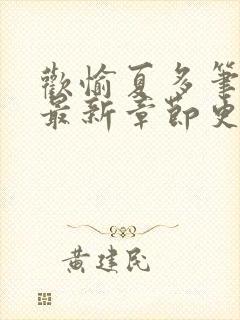 歡愉夏多筆
最新章節史
黃建民